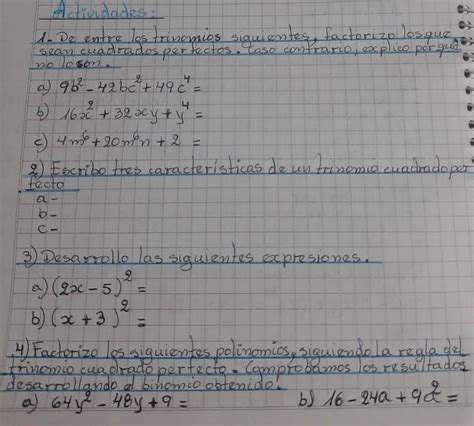 Actividades:
1.- De entre los trinomios siguientes, factorizo los que
sean cuadrados perfectos. Caso contrario, explico por qué
no lo son.
a) 9b² - 42bc² + 49c⁴ =
b) 16x² + 32xy + y⁴ =
c) 4m⁶ + 20m⁶n + 2 =
2) Escribo tres características de un trinomio cuadrado per
fecto
a-
b-
c-
3) Desarrollo las siguientes expresiones.
a) (2x - 5)² =
b) (x + 3)² =
4) Factorizo los siguientes polinomios, siguiendo la regla del
trinomio cuadrado perfecto. Comprobamos los resultados
desarrollando el binomio obtenido.
a) 64y² - 48y + 9 = b) 16 - 24a + 9a² =